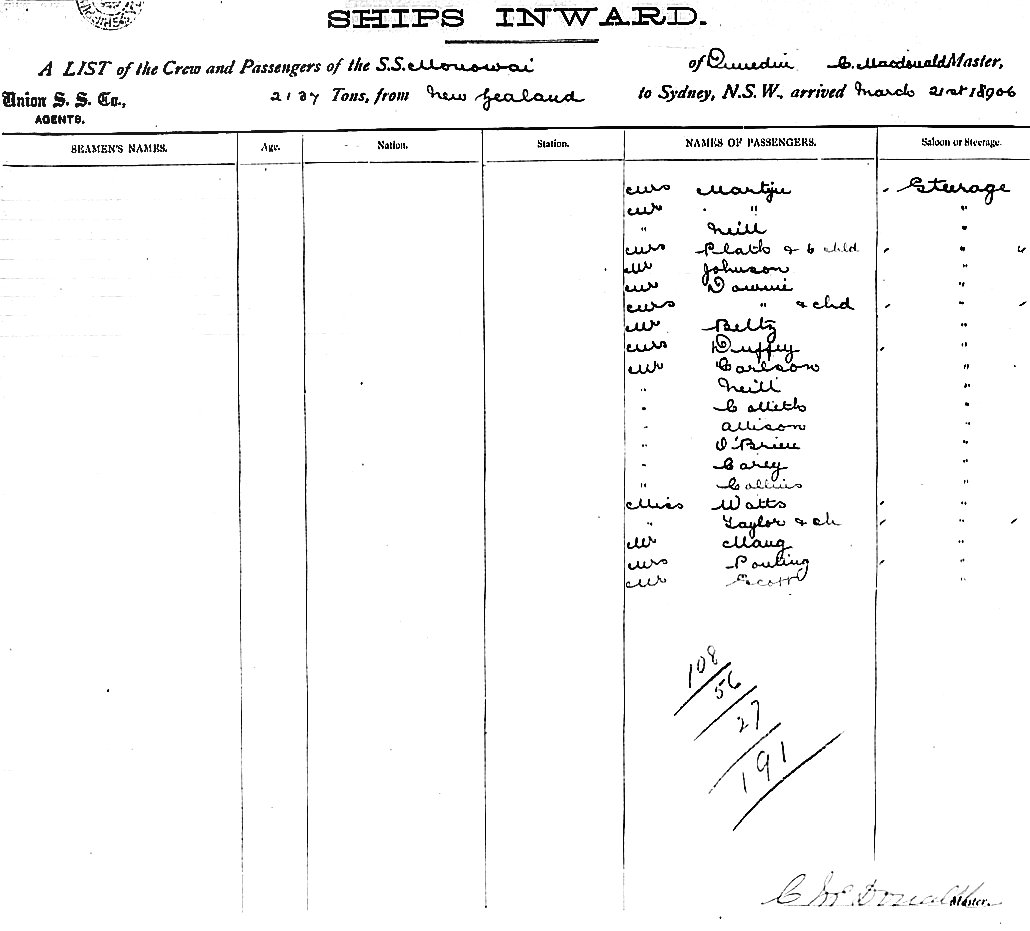 SHIPS INWARD.
A LIST of the Crew and Passengers of the S.S. Monowai of Dunedin C. Macdonald Master,
Union S. S. Co., 2137 Tons, from New Zealand to Sydney, N.S.W., arrived March 21st 18906
AGENTS.
SEAMEN'S NAMES. Age. Nation. Station. NAMES OF PASSENGERS. Saloon or Steerage.
Mrs Steerage
Mr " "
" Neill "
Mrs & 6 chld "
Mr Johnson "
Mr Downie "
Mrs " & chd "
Mr Beltz "
Mrs Duffey "
Mr Carlson "
" Neill "
" "
" Allison "
" O'Brien "
" Carey "
" Collins "
Miss Watts "
" Taylor & ch "
Mr "
Mrs Pouling "
Mr Scott "
108
56
27
191
C McDonald
Master.